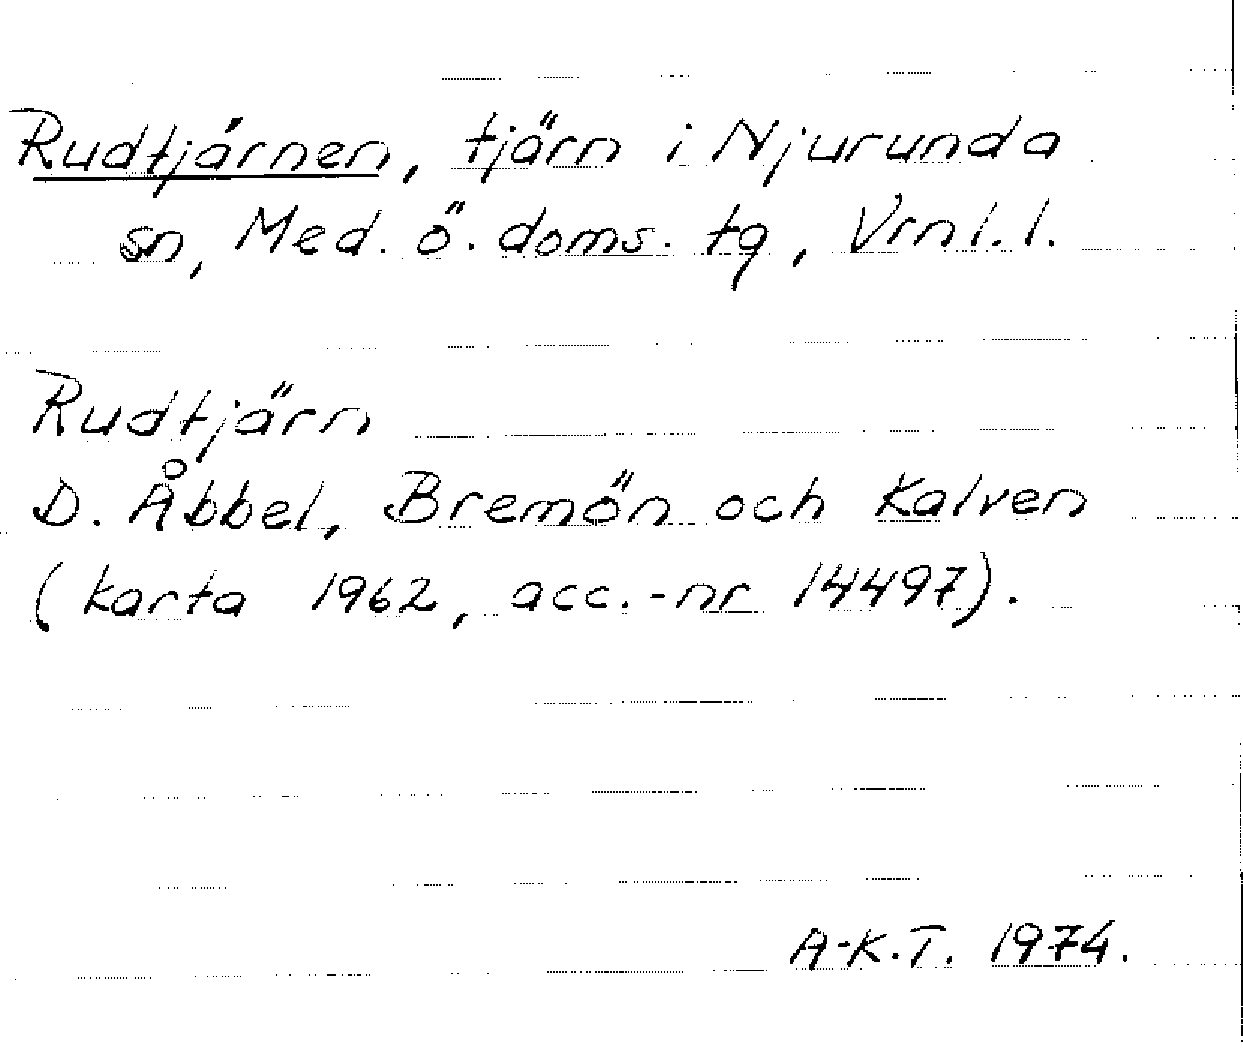 Rudtjärnen, tjärn i Njurunda
sn, Med. ö. doms. tg, Vrnl. l.
Rudtjärn
D. Åbbel, Bremön och Kalven
(karta 1962, acc.-nr 14497).
A-K.T. 1974.